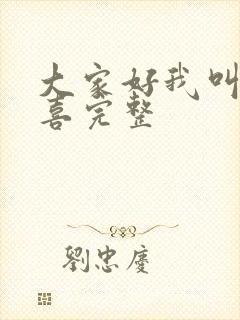 大家好我叫
喜完整
劉忠慶